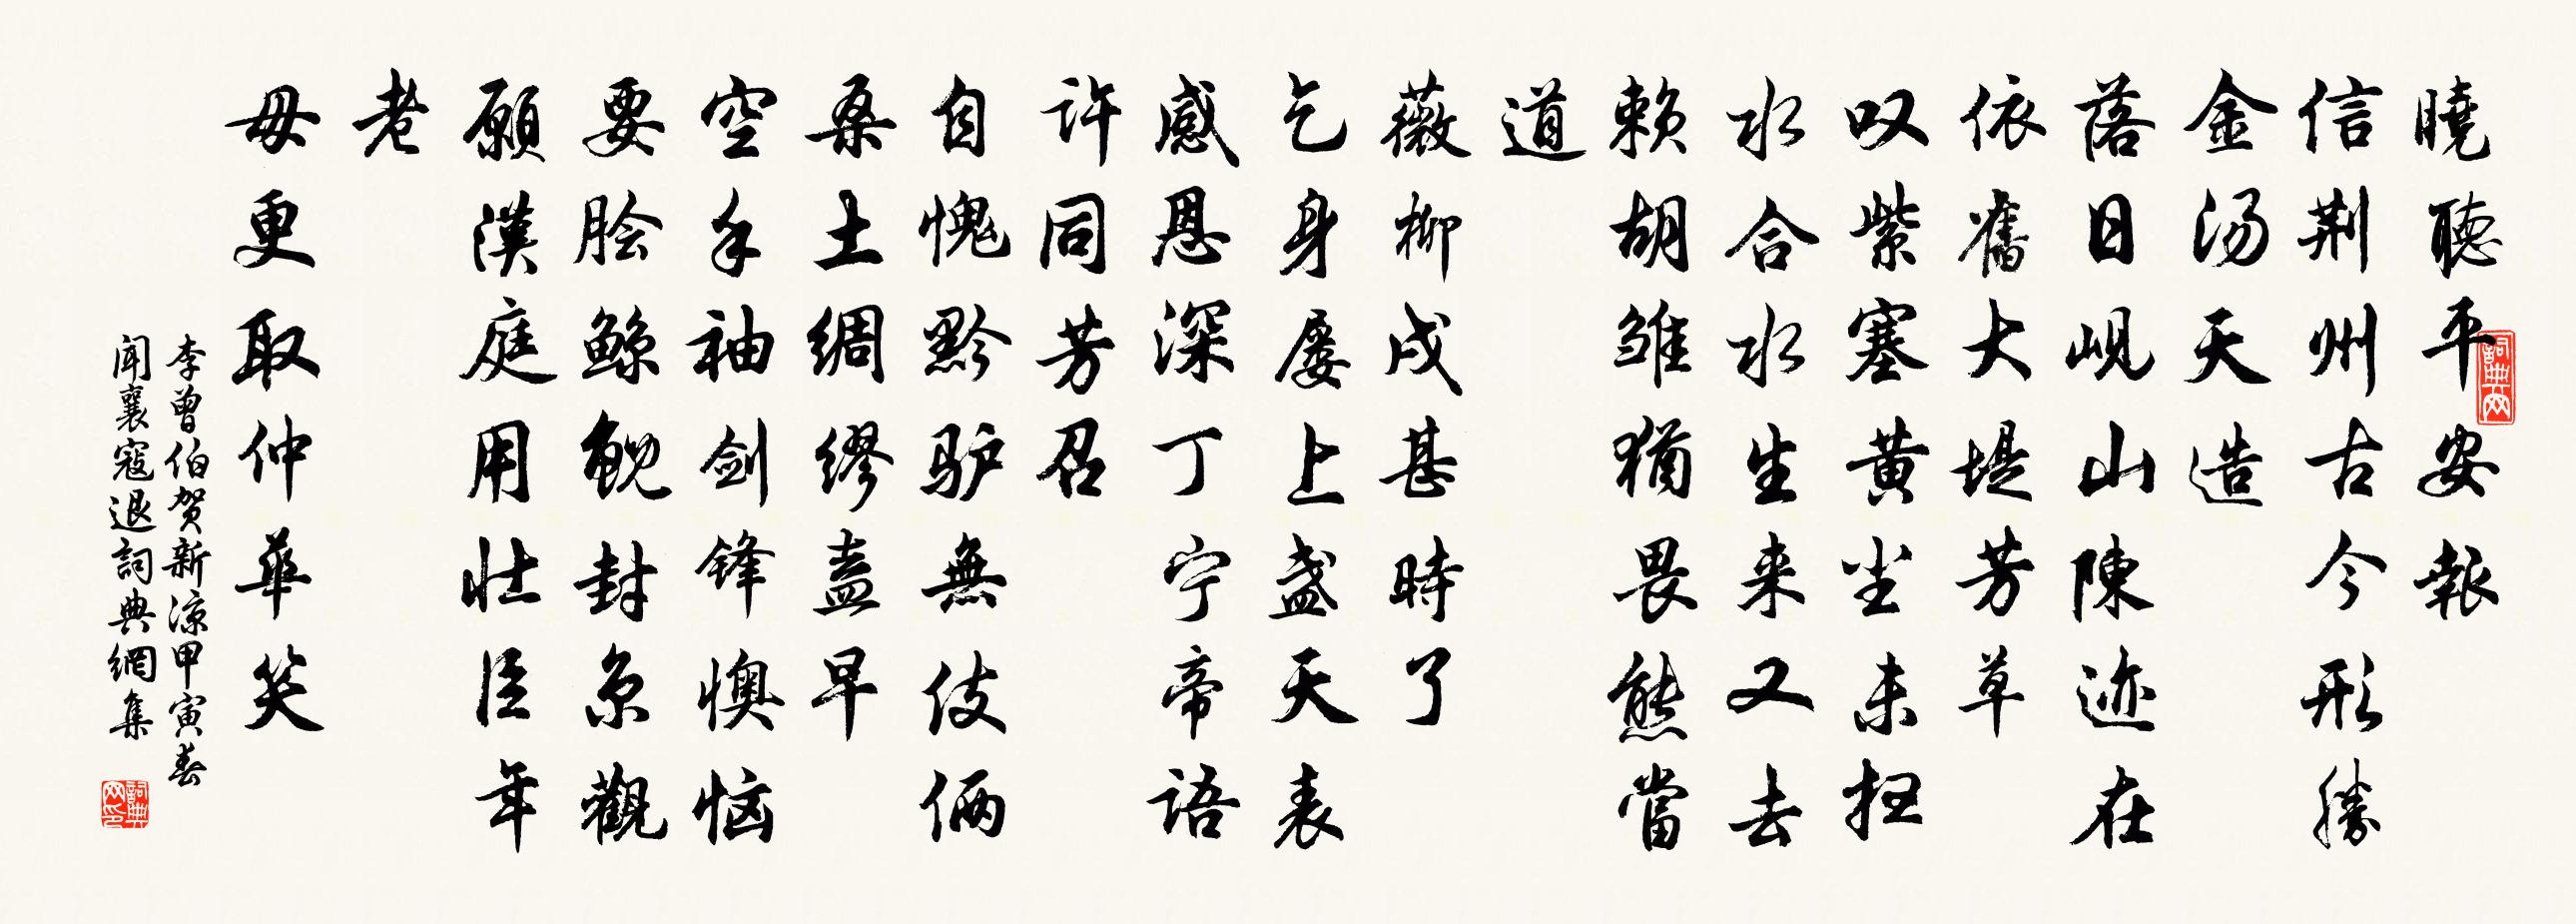 曉聽平安報
信荆州古今形勝
金汤天造
落日岘山陳迹在
依舊大堤芳草
叹紫塞黄尘未扫
水合水生来又去
赖胡雏猶畏熊當
道
薇柳戍甚時了
乞身屡上盏天表
感恩深丁宁帝語
许同芳召
自愧黔驴無伎俩
桑土绸缪盍早
空手袖剑锋懊恼
要脍鲸鲵封京觀
願漢庭用壮臣年
老
毋更取仲華笑
李曾伯贺新凉甲寅春
闻襄寇退詞典網集
詞典网
詞典网印